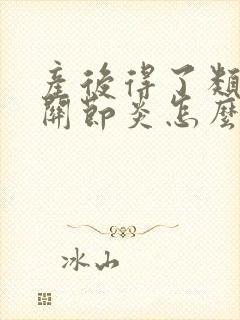 產後得了類
關節炎怎麼
冰山